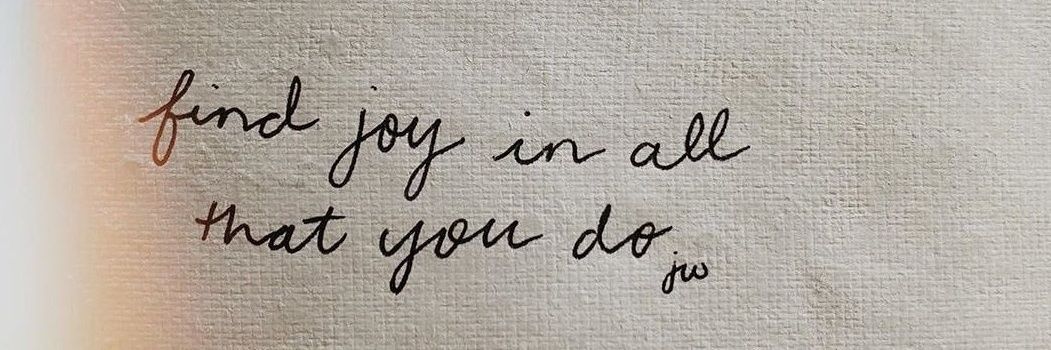 find joy in all
that you do
jw